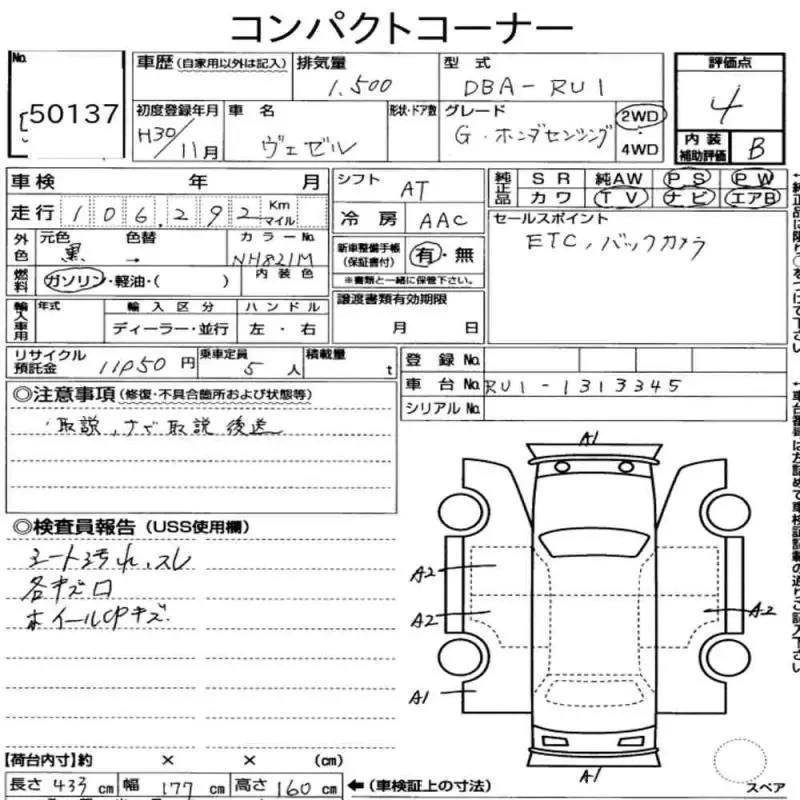 コンパクトコーナー
No. 50137
車歴 (自家用以外は記入) 排気量 1.500 型式 DBA-RU1 評価点 4
初度登録年月 H30/11月 車名 ヴェゼル 形状・ドア数 グレード G・ホンダセンシング 2WD 4WD 内装補助評価 B
車検 年 月 シフト AT 純正品 SR 純AW PS PW
カワ TV ナビ エアB
走行 106,292 Km マイル 冷房 AAC セールスポイント
ETC,バックカメラ
外色 元色 黒 色替 → カラーNo. NH821M 内装色
新車整備手帳(保証書付) 有・無
※書類と一緒に保管下さい。
燃料 ガソリン・軽油・( )
譲渡書類有効期限
月 日
輸入車用 年式 輸入区分 ハンドル
ディーラー・並行 左・右
リサイクル預託金 11050円 乗車定員 5人 積載量 t
登録No.
車台No. RU1-1313345
シリアルNo.
◎注意事項 (修復・不具合箇所および状態等)
・取説,ナビ取説 後送
◎検査員報告 (USS使用欄)
シート汚れ、スレ
各キズロ
ホイールCPキズ
A1
A2
A2 A2
A1
A1
スペア
【荷台内寸】約 × × (cm)
長さ 433 cm 幅 177 cm 高さ 160 cm ←(車検証上の寸法)